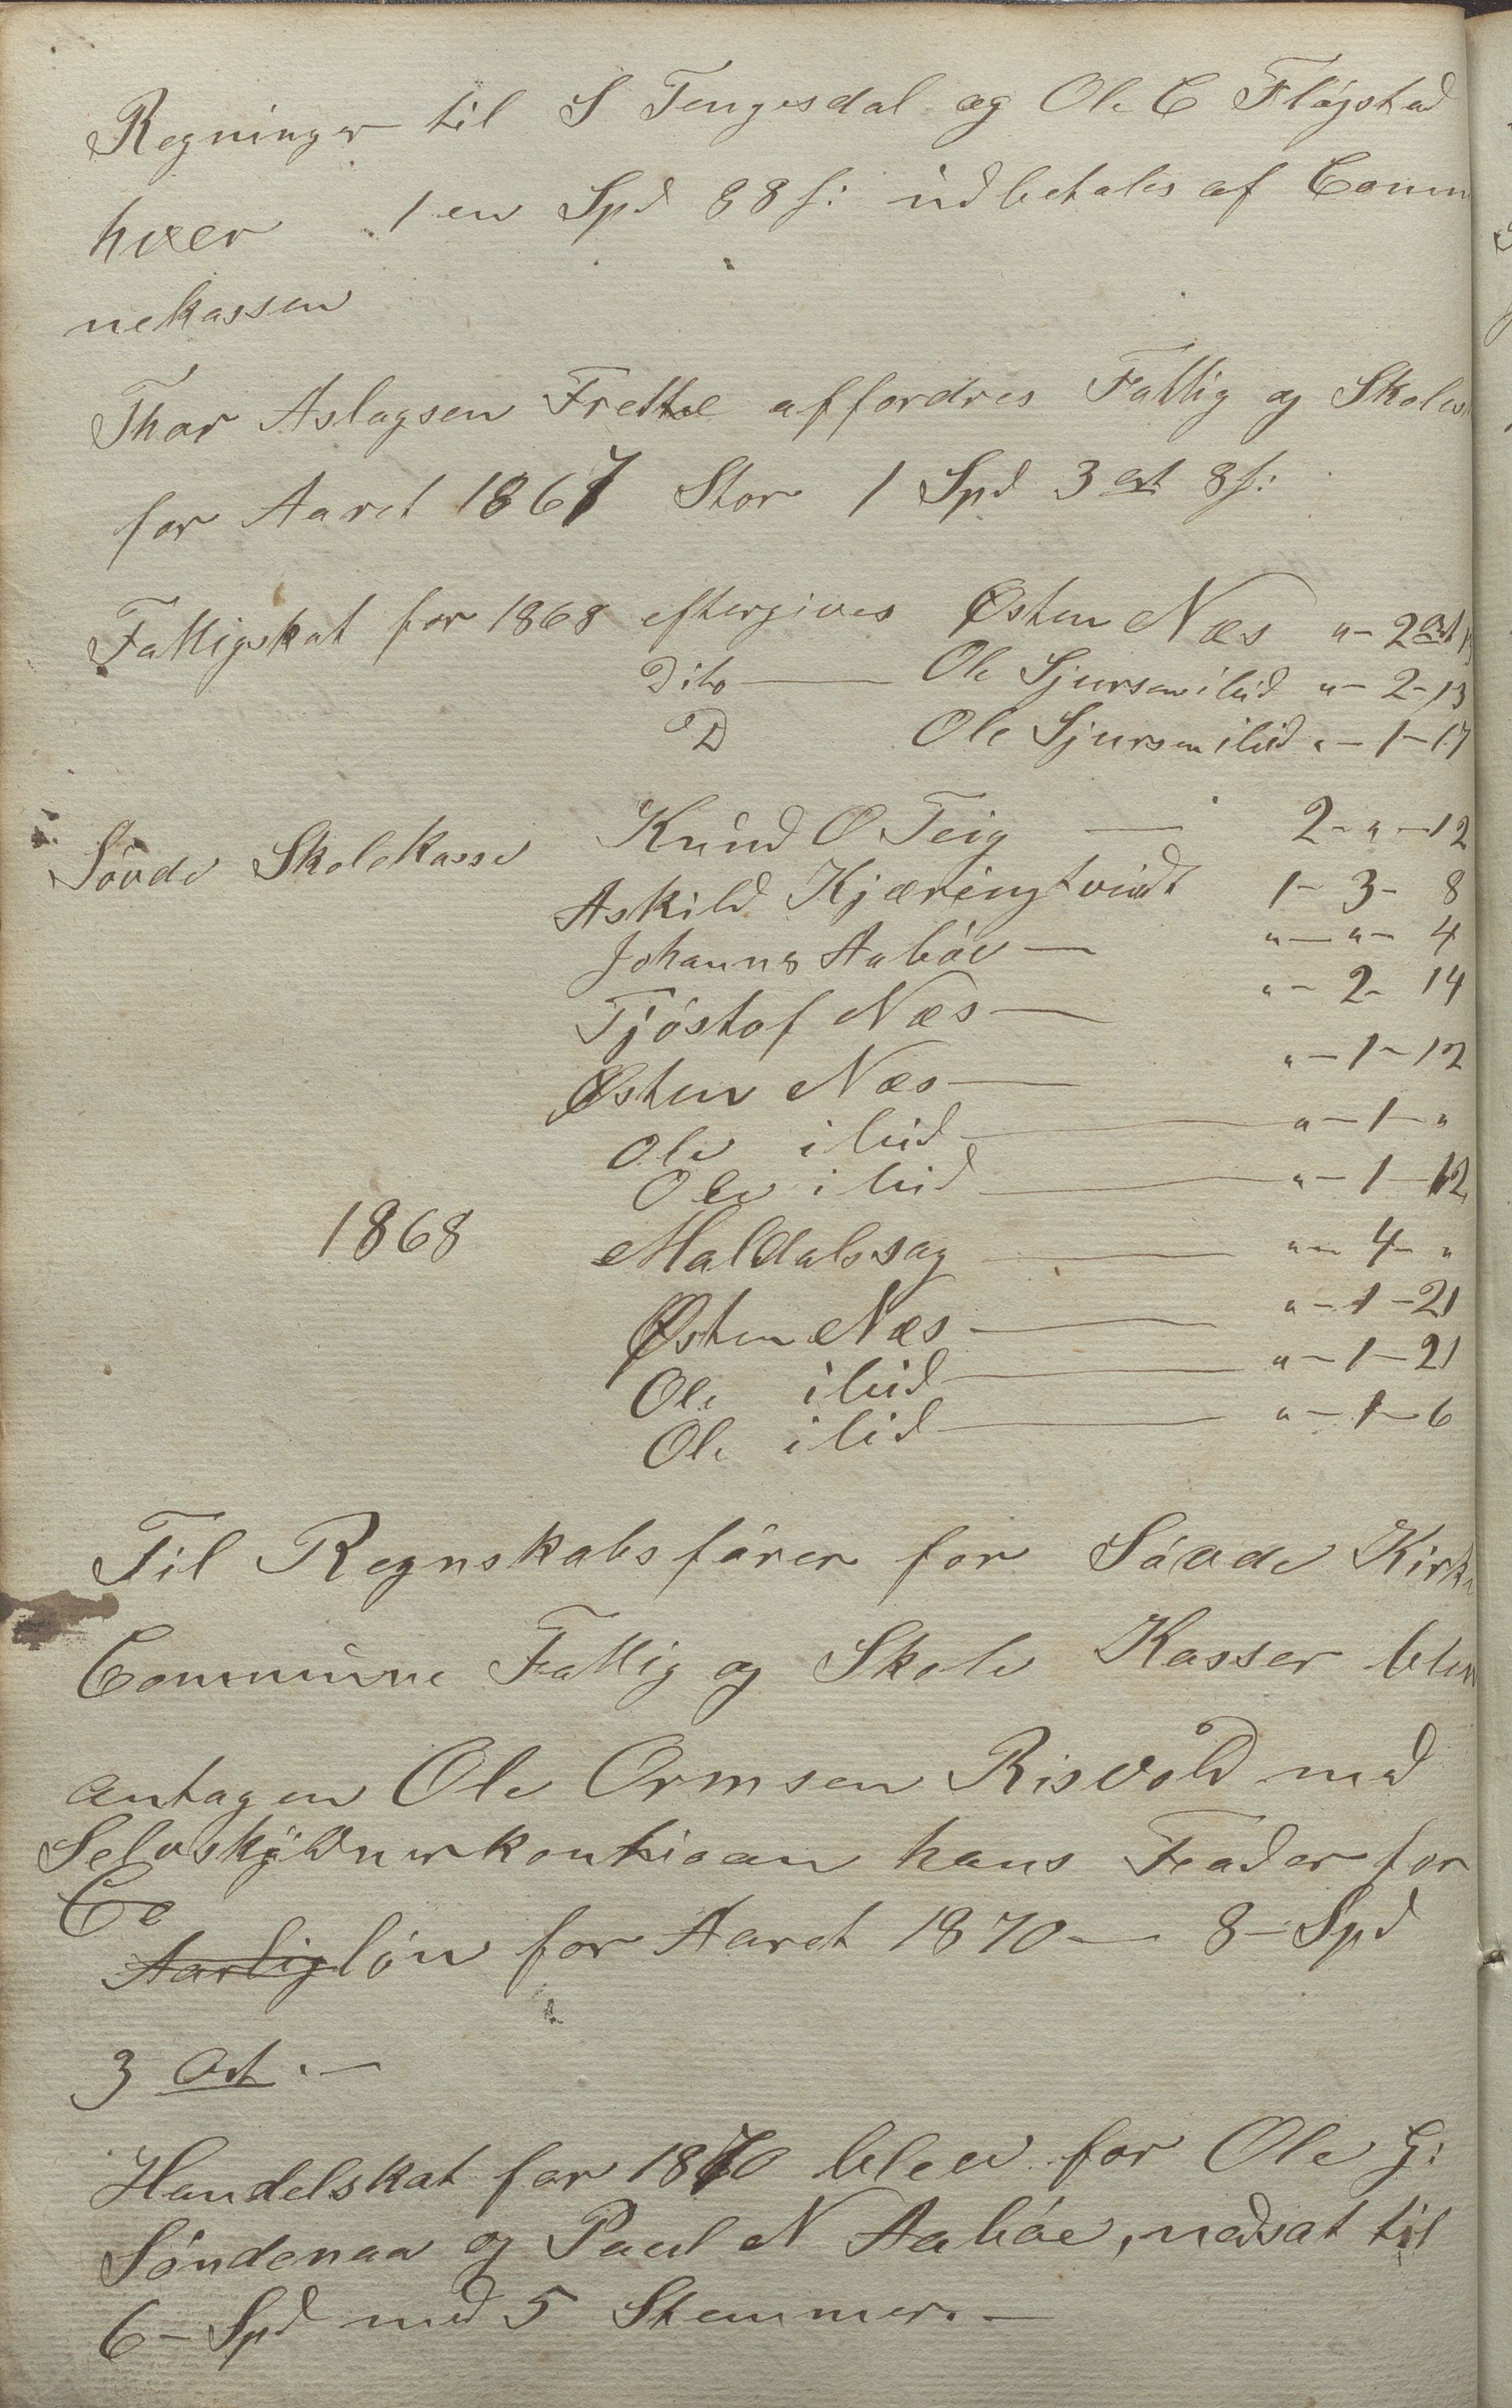 Regninger til S Tengesdal og Ole C Fløgstad
hver 1 en Spd 88 s: udbetales af Comm
nekassen
Thor Aslagsen Frette affordres Fattig og Skoles
for Aaret 1867 Stor 1 Spd 3 ort 8 s:
Fattigskat for 1868 eftergives Østen Næs " - 2 ort 13
Dito — Ole Sjursen ilid " - 2 - 13
D Ole Sjursen ilid " - 1 - 17
Søvde Skolekasse Knud O Teig — 2 - " - 12
Askild Kjæringtveidt 1 - 3 - 8
Johannes Aabøe — " - " - 4
Tjøstof Næs — " - 2 - 14
Østen Næs — " - 1 - 12
Ole ilid — " - 1 - "
Ole ilid — " - 1 - 12
1868 Maldalssag — " - 4 - "
Østen Næs — " - 1 - 21
Ole ilid — " - 1 - 21
Ole ilid — " - 1 - 6
Til Regnskabsfører for Søvde Kirke
Commune Fattig og Skole Kasser blev
antagen Ole Ormsen Risvold med
Selvskyldnerkautioan hans Fader for
Aarlig løn for Aaret 1870 — 8 - Spd
3 Ort. —
Handelskat for 1870 blev for Ole G:
Søndenaa og Paul N Aabøe, nedsat til
6 - Spd med 5 Stemmer. —